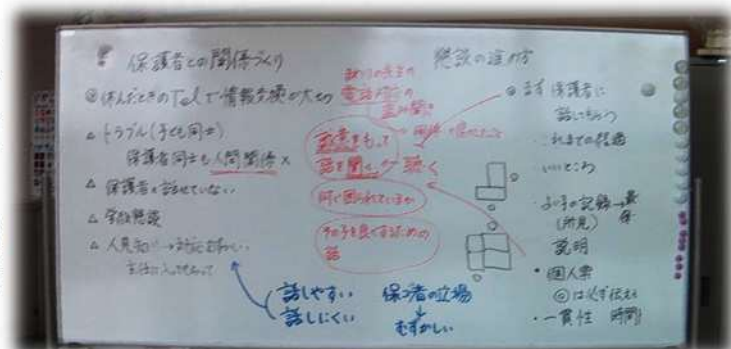 保護者との関係づくり
◎ 休んだときのTelで情報交換が大切
△ トラブル(子ども同士)
保護者同士も人間関係×
△ 保護者と話せていない
△ 学級懇談
△ 人見知り→対応むずかしい
主任に入ってもらって
電話対応の
敬意をもって
話を聞く 聴く
何で困られているか
その子を良くするための
話
話しやすい
話しにくい
保ゴ者の立場
↓
むずかしい
懇談の進め方
◎ まず保護者に
話してもらう
・これまでの経過
・いいところ
・よい子の記録→
(所見)
説明
・個人票
◎は必ず伝える
・一貫性 時間!